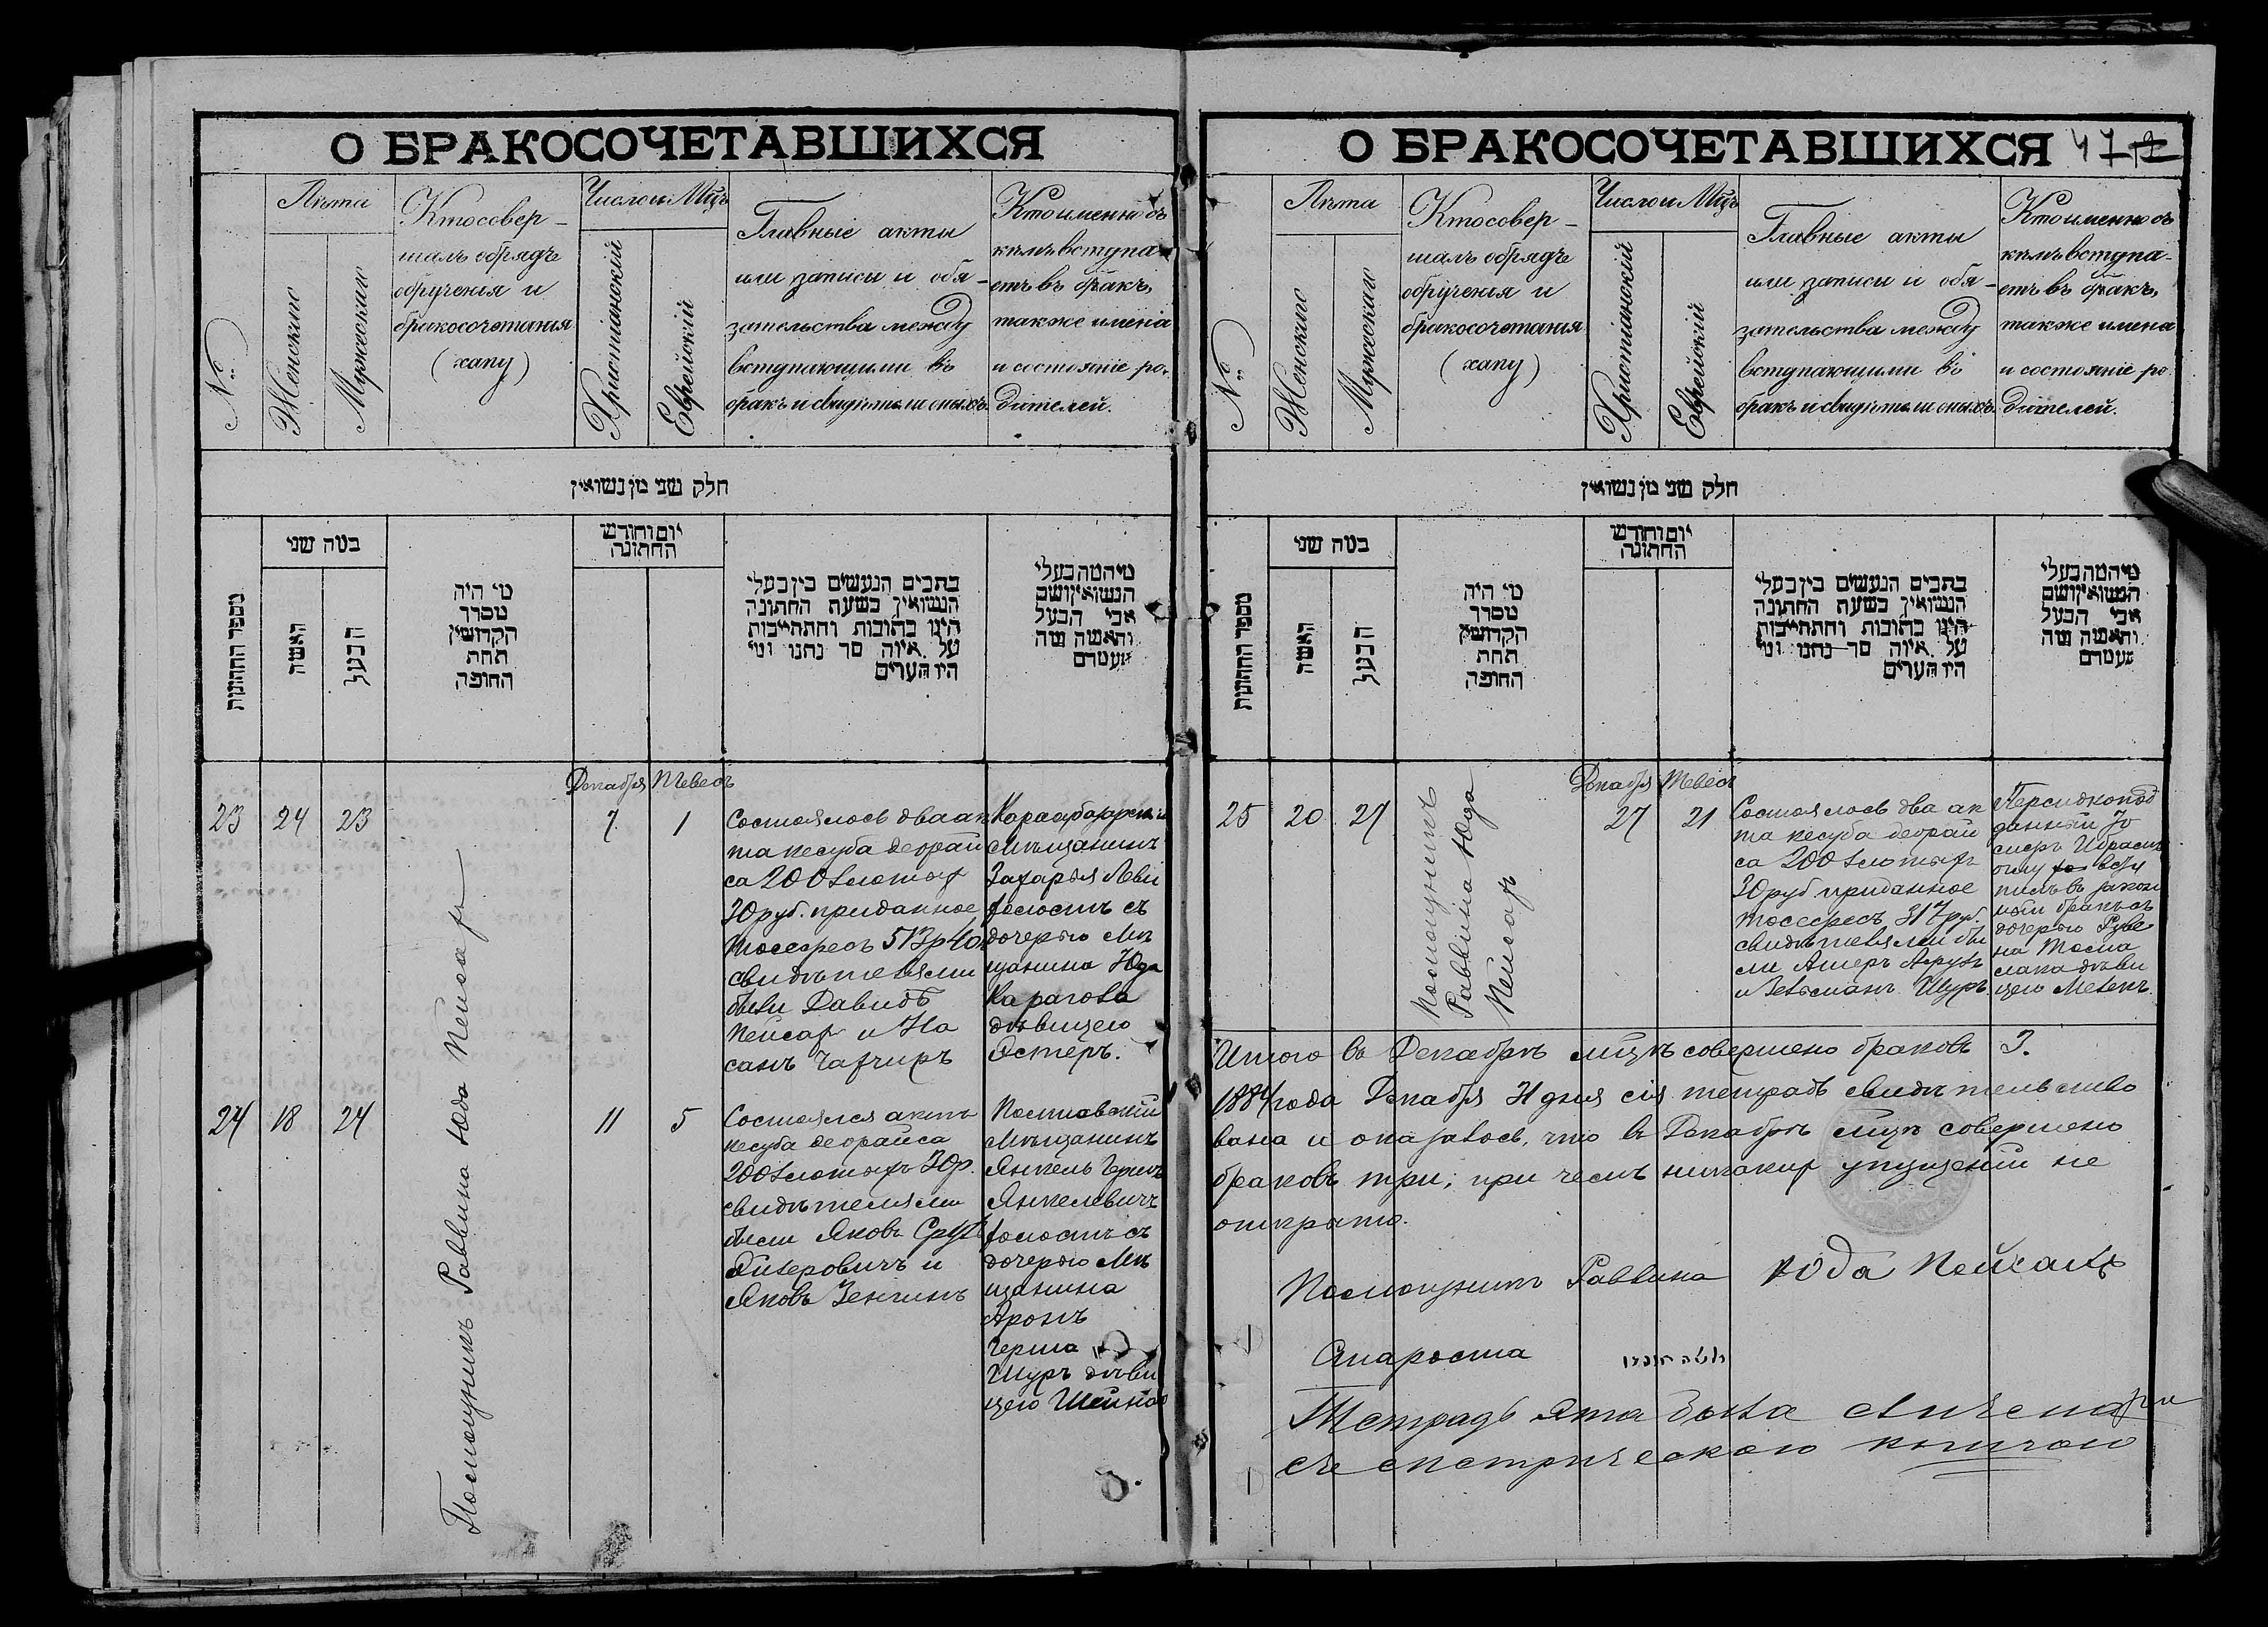 О БРАКОСОЧЕТАВШИХСЯ
№
Лѣта
Женскаго
Мужескаго
Кто совер-
шалъ обрядъ
обрученія и
бракосочетанія
(хапу)
Число и Мцъ
Христіанскій
Еврейскій
Главные акты
или записи и обя-
зательства между
вступающими въ
бракъ и свидѣтели оныхъ.
Кто именно съ
кѣмъ вступа-
етъ въ бракъ,
также имена
и состояніе ро-
дителей.
חלק שני מן נשואין
מספר החתונות
במה שני
האשה
הבעל
מי היה
מסדר
הקדושין
תחת
החופה
יום וחודש
החתונה
כתבים הנעשים בין בעלי
הנשואין בשעת החתונה
היינו כתובות והתחייבות
על איזה סך נתנו ומי
היו העדים
מי המה בעלי
הנשואין ושם
אבי הבעל
והאשה ומה
מעמדם
Декабря Тевесъ
23 24 23
7 1
Состоялось два ак
та кесуба деорай
са 200 злотых
30 руб. приданное
тосефесъ 513 р 40
свидѣтелями
были Давидъ
Пейсах и На
санъ Чапчиръ
Карасубазарскій
Мѣщанинъ
Захарья Леви
холостъ съ
дочерью Мѣ
щанина Юда
Карагоза
дѣвицею
Эстеръ.
24 18 24
11 5
Состоялся актъ
кесуба деорайса
200 злотыхъ 30 р.
свидѣтелями
были Яковъ
и
Яковъ Зенгинъ
Мѣщанинъ
Янкель Герш
Янкелевичъ
холостъ съ
дочерью Мѣ
щанина
Аронъ
Герша
Шуръ дѣви
цею Шейна
Помощникъ Раввина Юда Пейсах
О БРАКОСОЧЕТАВШИХСЯ 47
№
Лѣта
Женскаго
Мужескаго
Кто совер-
шалъ обрядъ
обрученія и
бракосочетанія
(хапу)
Число и Мцъ
Христіанскій
Еврейскій
Главные акты
или записи и обя-
зательства между
вступающими въ
бракъ и свидѣтели оныхъ.
Кто именно съ
кѣмъ вступа-
етъ въ бракъ,
также имена
и состояніе ро-
дителей.
חלק שני מן נשואין
מספר החתונות
במה שני
האשה
הבעל
מי היה
מסדר
הקדושין
תחת
החופה
יום וחודש
החתונה
כתבים הנעשים בין בעלי
הנשואין בשעת החתונה
היינו כתובות והתחייבות
על איזה סך נתנו ומי
היו העדים
מי המה בעלי
הנשואין ושם
אבי הבעל
והאשה ומה
מעמדם
Декабря Тевесъ
25 20 27
Помощникъ
Раввина Юда
Пейсах
27 21
Состоялось два ак
та кесуба деорай
са 200 злотыхъ
30 руб приданное
тосефесъ 317 руб.
свидѣтелями бы
ли Ашеръ
и Зельманъ Шуръ
Персидкопод
данный Іо
сифъ Ибрагим
оглу всту
пилъ въ закон
ный бракъ съ
дочерью Руве
на
дѣви
цею Мелекъ.
Итого въ Декабрѣ мцѣ совершено браковъ 3.
1884 года Декабря 31 дня сія тетрадь свидѣтельство
вана и оказалось, что въ Декабрѣ мцѣ совершено
браковъ три; при чемъ никакихъ упущеній не
открыто.
Помощникъ Раввина Юда Пейсахъ
Староста
Тетрадь эта была сличена
съ метрическою книгою